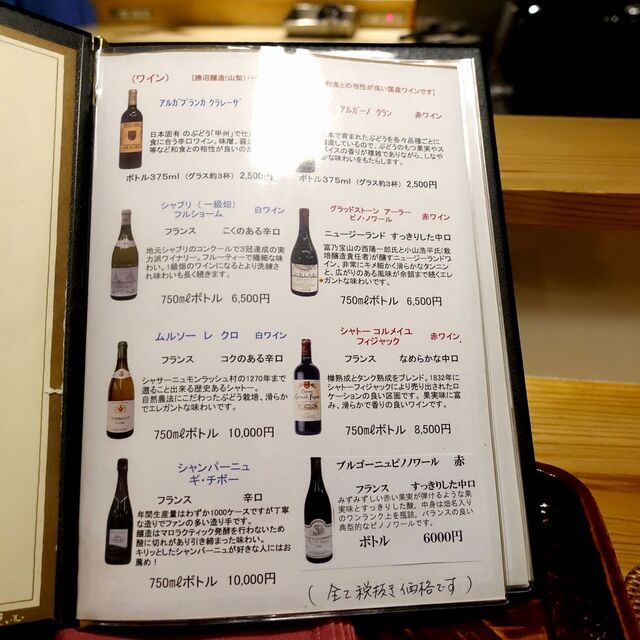 (ワイン)
[勝沼醸造(山梨)・
和食との相性が良い国産ワインです]
アルガブランカ クラレーザ
日本固有 のぶどう「甲州」で仕
食に合う辛口ワイン。味噌、醤
等など和食との相性が良いのが
ボトル375ml (グラス約3杯) 2,500円
アルガーノ クラン 赤ワイン
本で育まれたぶどうを各々品種ごとに
醸造しているので、ぶどうのもつ果実や
パイスの香りが複雑でありながら、しなや
かな味わいをもたらします。
ボトル375ml (グラス約3杯) 2,500円
シャブリ (一級畑) 白ワイン
フルショーム
フランス こくのある辛口
地元シャブリのコンクールで3冠達成の実
力派ワイナリー。フルーティーで繊細な味
わい。1級畑のワインになるとより洗練さ
れ味わいも長く続きます。
750mℓボトル 6,500円
グラッドストーン アーラー 赤ワイン
ピノ・ノワール
ニュージーランド すっきりした中口
富乃宝山の西陽一郎氏と小山浩平氏(栽
培醸造責任者)が醸すニュージーランドワ
イン、非常にキメ細かく滑らかなタンニン
と、広がりのある風味が余韻まで続くエレ
ガントな味わいです。
750mℓボトル 6,500円
ムルソー レ クロ 白ワイン
フランス コクのある辛口
シャサーニュモンラッシュ村の1270年まで
遡ること出来る歴史あるシャトー。
自然農法にこだわったぶどう栽培、滑らか
でエレガントな味わいです。
750mℓボトル 10,000円
シャトー コルメイユ 赤ワイン
フィジャック
フランス なめらかな中口
樽熟成とタンク熟成をブレンド。1832年に
シャトーフィジャックにより売り出されたロ
ケーションの良い区画です。 果実味に富
み、滑らかで香りの良いワインです。
750mℓボトル 8,500円
シャンパーニュ
ギ・チボー
フランス 辛口
年間生産量はわずか1000ケースですが丁寧
な造りでファンの多い造り手です。
醸造はマロラクティック発酵を行わないため
酸に切れがあり引き締まった味わい。
キリッとしたシャンパーニュが好きな人にはお
薦め!
750mℓボトル 10,000円
ブルゴーニュピノノワール 赤
フランス すっきりした中口
みずみずしい赤い果実が弾けるような果
実味とすっきりした酸。中身は畑名入り
のワンランク上を瓶詰。バランスの良い
典型的なピノノワールです。
ボトル 6000円
(全て税抜き価格です)